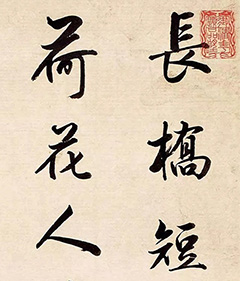 長橋短
荷花人